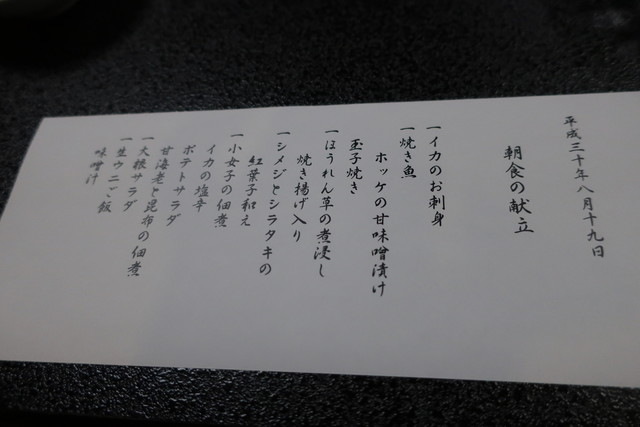 平成三十年八月十九日
朝食の献立
一イカのお刺身
一焼き魚
ホッケの甘味噌漬け
玉子焼き
一ほうれん草の煮浸し
焼き揚げ入り
一シメジとシラタキの
紅葉子和え
一小女子の佃煮
イカの塩辛
ポテトサラダ
甘海老と昆布の佃煮
一大根サラダ
一生ウニご飯
味噌汁